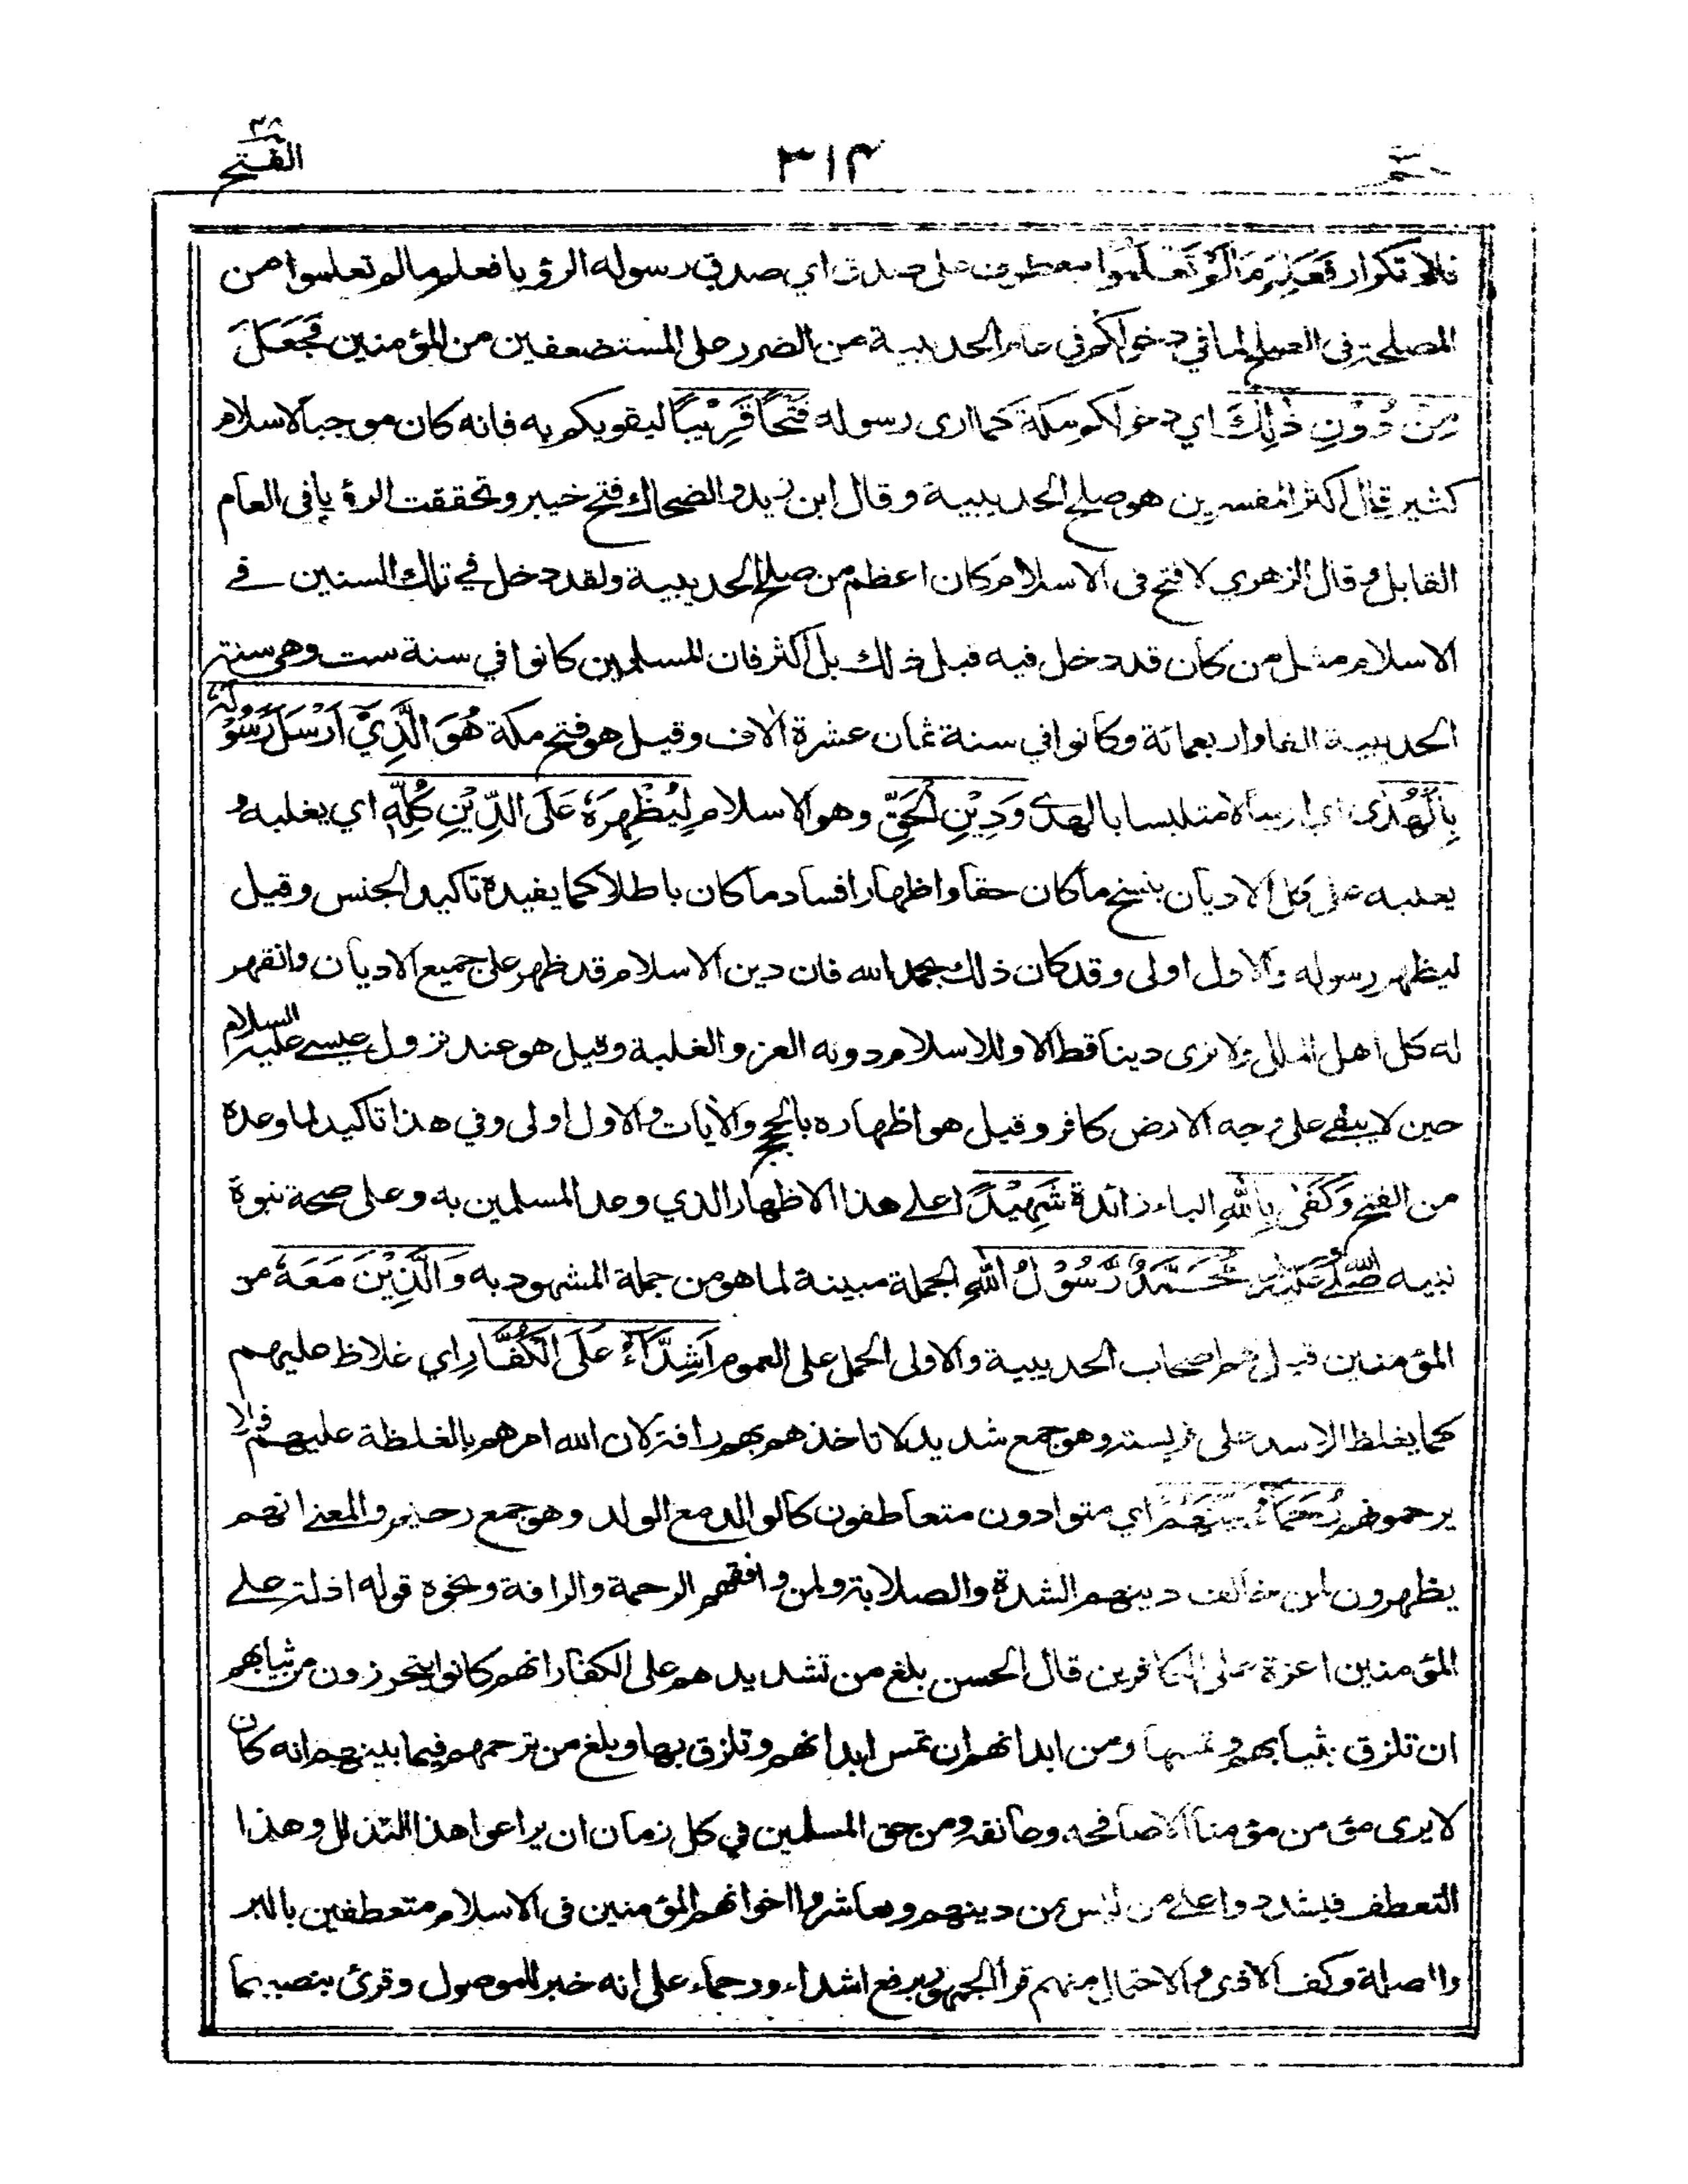 الفتح ٤٨
٣١٤
حم
فلا تكرار فَعَلِمَ مَا لَمْ تَعْلَمُوا معطوف على صدق اي صدق رسوله الرؤيا فعلم مالم تعلموا من
المصلحة في الصلح لما في دخولكم في عام الحديبية من الضرر على المستضعفين من المؤمنين فَجَعَلَ
مِنْ دُوْنِ ذٰلِكَ اي دخولكم مكة كما ارى رسوله فَتْحًا قَرِيْبًا ليقويكم به فانه كان موجبا لاسلام
كثير قال اكثر المفسرين هو صلح الحديبية وقال ابن زيد والضحاك فتح خيبر وتحققت الرؤيا في العام
القابل وقال الزهري لا فتح في الاسلام كان اعظم من صلح الحديبية ولقد دخل في تلك السنين في
الاسلام مثل من كان قد دخل فيه قبل ذلك بل اكثر فان المسلمين كانوا في سنة ست وهي سنة
الحديبية الفا واربعمائة وكانوا في سنة ثمان عشرة الاف وقيل هو فتح مكة هُوَ الَّذِيْٓ اَرْسَلَ رَسُوْلَهٗ
بِالْهُدٰى اي ارسالا متلبسا بالهدى وَدِيْنِ الْحَقِّ وهو الاسلام لِيُظْهِرَهٗ عَلَى الدِّيْنِ كُلِّهٖ اي يغلبه و
يعليه على كل الاديان بنسخ ما كان حقا واظهار فساد ما كان باطلا كما يفيده تاكيد الجنس وقيل
ليظهر رسوله والاول اولى وقد كان ذلك بحمد الله فان دين الاسلام قد ظهر على جميع الاديان وانقهر
له كل اهل الملل ولا نرى دينا قط الا وللاسلام دونه العز والغلبة وقيل هو عند نزول عيسى عليه السلام
حين لا يبقى على وجه الارض كافر وقيل هو اظهاره بالحجج والآيات والاول اولى وفي هذا تاكيد لما وعده
من الفتح وَكَفٰى بِاللّٰهِ الباء زائدة شَهِيْدًا على هذا الاظهار الذي وعد المسلمين به وعلى صحة نبوة
نبيه صلى الله عليه وسلم مُحَمَّدٌ رَّسُوْلُ اللّٰهِ الجملة مبينة لما هو من جملة المشهود به وَالَّذِيْنَ مَعَهٗ من
المؤمنين قيل هم اصحاب الحديبية والاولى الحمل على العموم اَشِدَّآءُ عَلَى الْكُفَّارِ اي غلاظ عليهم
كما يغلظ الاسد على فريسته وهو جمع شديد لا تاخذهم بهم رافة لان الله امرهم بالغلظة عليهم فلا
يرحمونهم رُحَمَآءُ بَيْنَهُمْ اي متوادون متعاطفون كالوالد مع الولد وهو جمع رحيم والمعنى انهم
يظهرون لمن خالف دينهم الشدة والصلابة ولمن وافقهم الرحمة والرافة ونحوه قوله اذلة على
المؤمنين اعزة على الكافرين قال الحسن بلغ من تشديدهم على الكفار انهم كانوا يتحرزون من ثيابهم
ان تلزق بثيابهم وتمسها ومن ابدانهم ان تمس ابدانهم وتلزق بها وبلغ من ترحمهم فيما بينهم انه كان
لا يرى مؤمن مؤمنا الا صافحه وعانقه ومن حق المسلمين في كل زمان ان يراعوا هذا التذلل وهذا
التعطف فيشددوا على من ليس من دينهم ويعاشروا اخوانهم المؤمنين في الاسلام متعطفين بالبر
والصلة وكف الاذى والاحتمال منهم قرأ الجمهور برفع اشداء ورحماء على انه خبر للموصول وقرئ بنصبهما